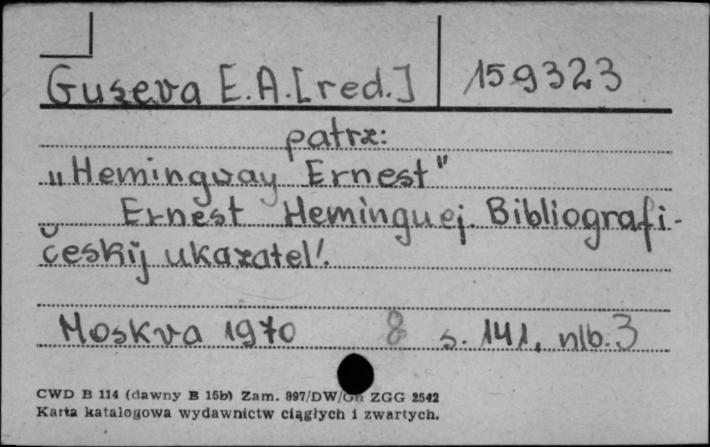 Guseva E.A. [red.] 159323
patrz:
„Hemingway Ernest"
Ernest Heminguej. Bibliografi-
českij ukazatel'.
Moskva 1970 8 s. 141, nlb. 3
CWD B 114 (dawny B 15b) Zam. 997/DW/ ZGG 2542
Karta katalogowa wydawnictw ciągłych i zwartych.